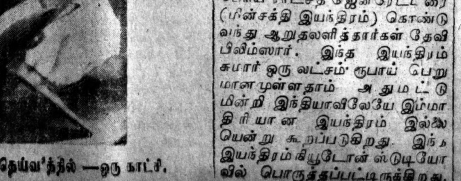 (மின்சக்தி இயந்திரம்) கொண்டு
வந்து ஆறுதலளித்தார்கள் தேவி
பிலிம்ஸார். இந்த இயந்திரம்
சுமார் ஒரு லட்சம் ரூபாய் பெறு
மானமுள்ளதாம் அதுமட்டு
மின்றி இந்தியாவிலேயே இம்மா
திரியான இயந்திரம் இல்லை
யென்று கூறப்படுகிறது. இந்த
இயந்திரம் நியூடோன் ஸ்டுடியோ
வில் பொருத்தப்பட்டிருக்கிறது.
தெய்வ'த்தில் —ஒரு காட்சி.